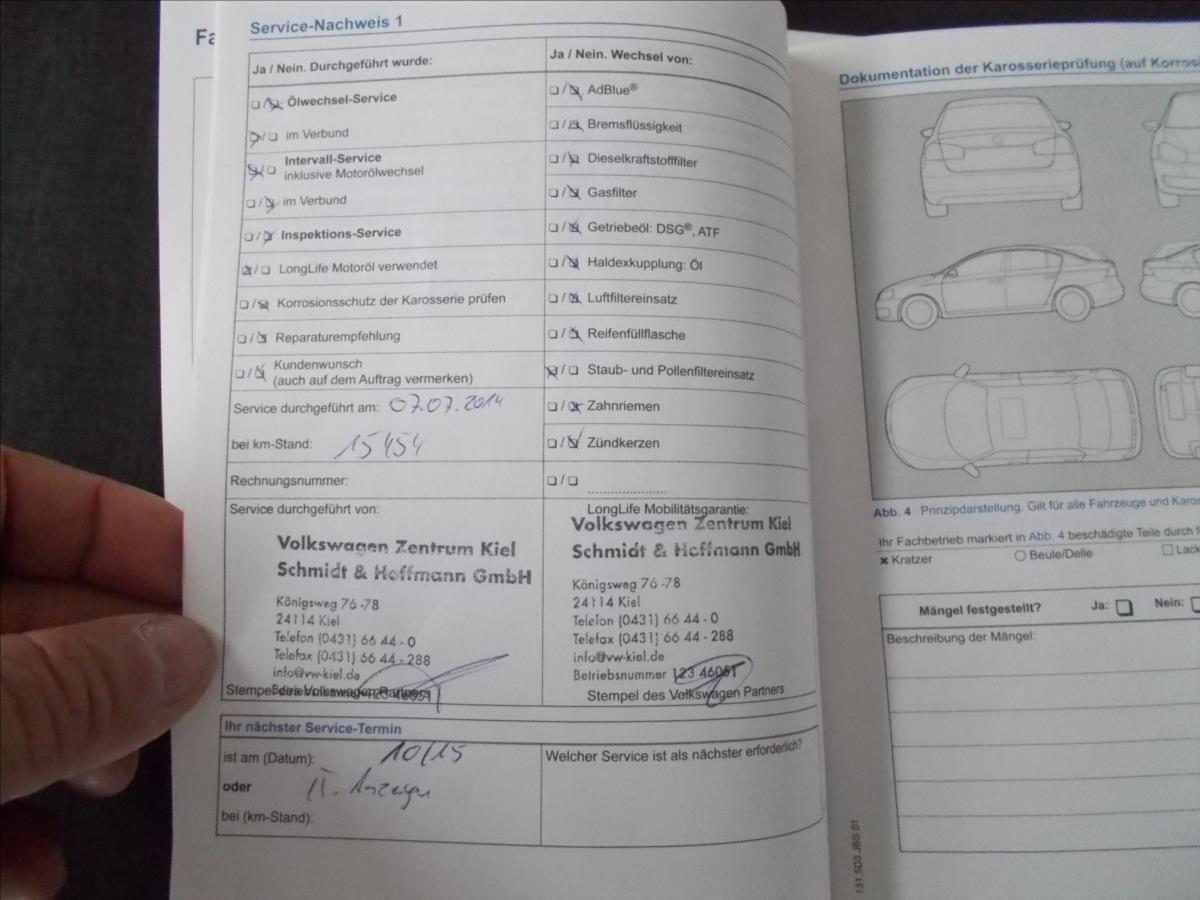 Fa
Service-Nachweis 1
Ja / Nein. Durchgeführt wurde:
Ölwechsel-Service
im Verbund
Intervall-Service
inklusive Motorölwechsel
im Verbund
Inspektions-Service
LongLife Motoröl verwendet
Korrosionsschutz der Karosserie prüfen
Reparaturempfehlung
Kundenwunsch
(auch auf dem Auftrag vermerken)
Service durchgeführt am: 07.07.2014
bei km-Stand: 15454
Rechnungsnummer:
Ja / Nein. Wechsel von:
AdBlue®
Bremsflüssigkeit
Dieselkraftstofffilter
Gasfilter
Getriebeöl: DSG®, ATF
Haldexkupplung: Öl
Luftfiltereinsatz
Reifenfüllflasche
Staub- und Pollenfiltereinsatz
Zahnriemen
Zündkerzen
Service durchgeführt von:
Volkswagen Zentrum Kiel
Schmidt & Hoffmann GmbH
Königsweg 76-78
24114 Kiel
Telefon (0431) 66 44-0
Telefax (0431) 66 44-288
info@vw-kiel.de
Stempel des Volkswagen Partners
LongLife Mobilitätsgarantie:
Volkswagen Zentrum Kiel
Schmidt & Hoffmann GmbH
Königsweg 76-78
24114 Kiel
Telefon (0431) 66 44-0
Telefax (0431) 66 44-288
info@vw-kiel.de
Betriebsnummer 123 46051
Stempel des Volkswagen Partners
Ihr nächster Service-Termin
ist am (Datum): 10/15
oder
bei (km-Stand):
Welcher Service ist als nächster erforderlich?
Dokumentation der Karosserieprüfung (auf Korros
Abb. 4 Prinzipdarstellung. Gilt für alle Fahrzeuge und Karos
Ihr Fachbetrieb markiert in Abb. 4 beschädigte Teile durch
Kratzer Beule/Delle Lack
Mängel festgestellt? Ja: Nein:
Beschreibung der Mängel:
131.5D3.JBS.01